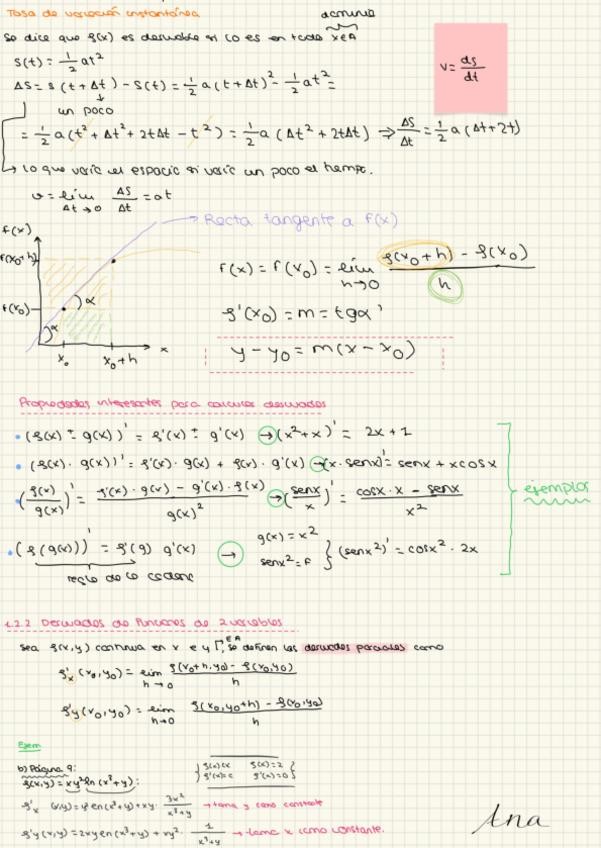 Tasa de variación instantánea
Se dice que f(x) es derivable si lo es en todo x∈A
dominio
S(t) = 1/2 at²
ΔS = s(t+Δt) - S(t) = 1/2 a(t+Δt)² - 1/2 at² =
un poco
= 1/2 a(t² + Δt² + 2tΔt - t²) = 1/2 a(Δt² + 2tΔt) ⇒ ΔS/Δt = 1/2 a(Δt + 2t)
v = ds/dt
lo que varía el espacio si varío un poco el tiempo.
v = lim Δt→0 ΔS/Δt = at
Recta tangente a f(x)
f(x)
f(x₀+h)
f(x₀)
α
α
x₀
x₀+h
x
f(x) = f(x₀) = lim h→0 f(x₀+h) - f(x₀) / h
f'(x₀) = m = tgα
y - y₀ = m(x - x₀)
Propiedades interesantes para calcular derivadas
• (f(x) ± g(x))' = f'(x) ± g'(x) → (x² + x)' = 2x + 1
• (f(x) · g(x))' = f'(x) · g(x) + f(x) · g'(x) → (x · senx)' = senx + xcosx
• (f(x)/g(x))' = f'(x) · g(x) - g'(x) · f(x) / g(x)² → (senx/x)' = cosx · x - senx / x²
ejemplos
• (f(g(x)))' = f'(g) g'(x) → g(x) = x² senx² = f } (senx²)' = cosx² · 2x
regla de la cadena
1.2.2 Derivadas de funciones de 2 variables
Sea f(x,y) continua en x e y ∈A, se definen las derivadas parciales como
f'x (x₀,y₀) = lim h→0 f(x₀+h,y₀) - f(x₀,y₀) / h
f'y (x₀,y₀) = lim h→0 f(x₀,y₀+h) - f(x₀,y₀) / h
Ejem
b) Página 9:
f(x,y) = xy²ln(x³+y):
f(x)=x f(x)=2
f'(x)=c f'(x)=0
→ toma y como constante
f'y(x,y) = 2xyen(x³+y) + xy² · 1/x³+y → toma x como constante.
Ana